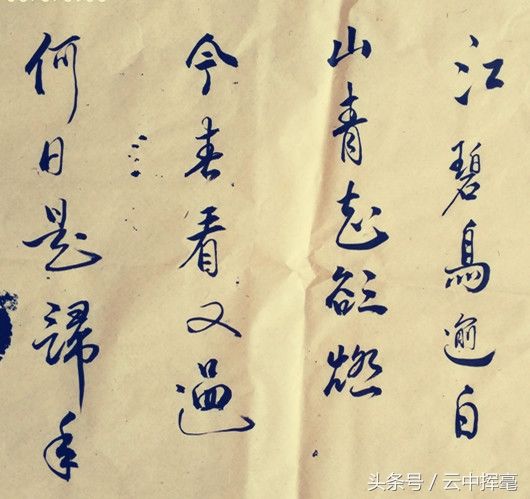 江碧鳥逾白
山青花欲燃
今春看又過
何日是歸年
头条号／云中挥毫